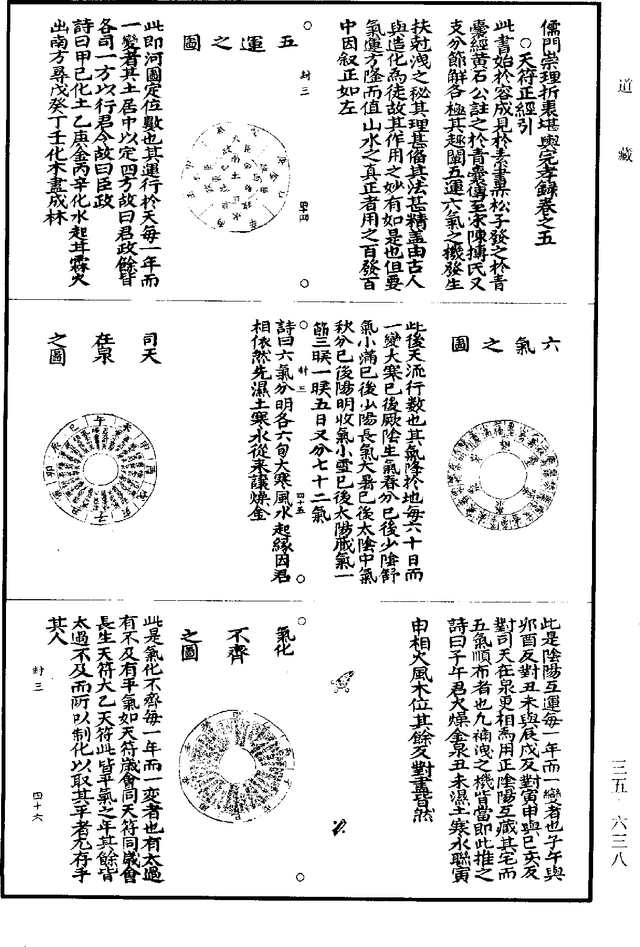 道藏
儒門崇理折衷堪輿完孝錄卷之五
○天符正經引
此書始於容成見於素書累松子發之於青
囊經黃石公註之於青囊傳至宋陳摶氏又
支分節解各極其趣闡五運六氣之機發生
扶尅洩之秘其理甚備其法甚精蓋由古人
與造化為徒故其作用之妙有如是也但要
氣運方隆而值山水之真正者用之百發百
中因叙正如左
封三
四十四
五運之圖
此即河圖定位數也其運行於天每一年而
一變者其土居中以定四方故曰君政餘皆
各司一方以行君令故曰臣政
詩曰甲己化土乙庚金丙辛化水起其霖火
出南方尋戊癸丁壬化木盡成林
六氣之圖
此後天流行數也其氣降於地每六十日而
一變大寒已後厥陰生氣春分已後少陰舒
氣小滿已後少陽長氣大暑已後太陰中氣
秋分已後陽明收氣小雪已後太陽藏氣一
節三候一候五日又分七十二氣
封三
四十五
詩曰六氣分明各六旬大寒風水起緣因君
相依然先濕土寒水從來讓燥金
司天在泉之圖
此是陰陽互運每一年而一變者也子午與
卯酉反對丑未與辰戌反對寅申與巳亥反
對司天在泉更相為用正陰陽互藏其宅而
五氣順布者也凡補洩之機皆當即此推之
詩曰子午君火燥金泉丑未濕土寒水聯寅
申相火風木位其餘反對盡皆然
氣化不齊之圖
此是氣化不齊每一年而一變者也有太過
有不及有平氣如天符歲會同天符同歲會
長生天符太乙天符此皆平氣之年其餘皆
太過不及而所以制化以取其平者尤存乎
其人
封三
四十六
三五·六三八